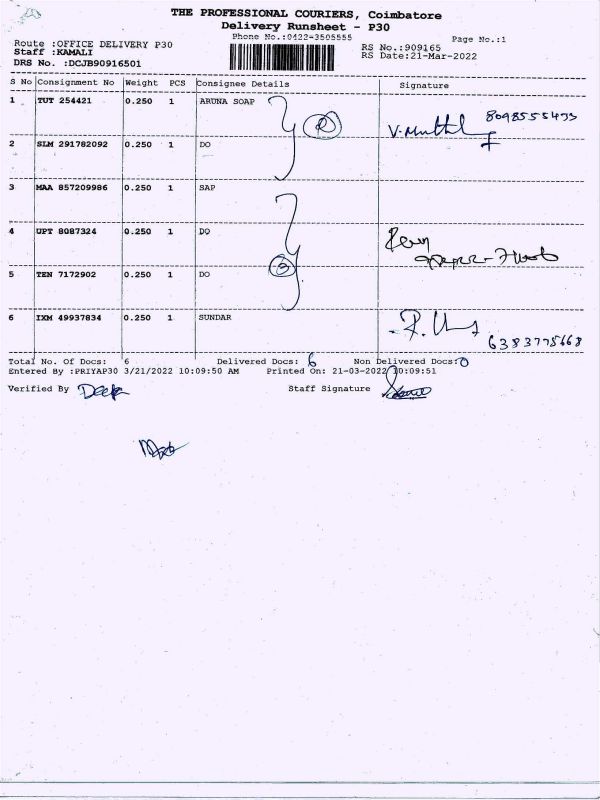 THE PROFESSIONAL COURIERS, Coimbatore
Delivery Runsheet - P30
Phone No.:0422-3505555
Page No.:1
Route :OFFICE DELIVERY P30
Staff :KAMALI
DRS No. :DCJB90916501
RS No.:909165
RS Date:21-Mar-2022
S No Consignment No Weight PCS Consignee Details Signature
1 TUT 254421 0.250 1 ARUNA SOAP
2 SLM 291782092 0.250 1 DO
3 MAA 857209986 0.250 1 SAP
4 UPT 8087324 0.250 1 DO
5 TEN 7172902 0.250 1 DO
6 IXM 49937834 0.250 1 SUNDAR
6383775668
Total No. Of Docs: 6 Delivered Docs: 6 Non Delivered Docs:0
Entered By :PRIYAP30 3/21/2022 10:09:50 AM Printed On: 21-03-2022 10:09:51
Verified By Staff Signature